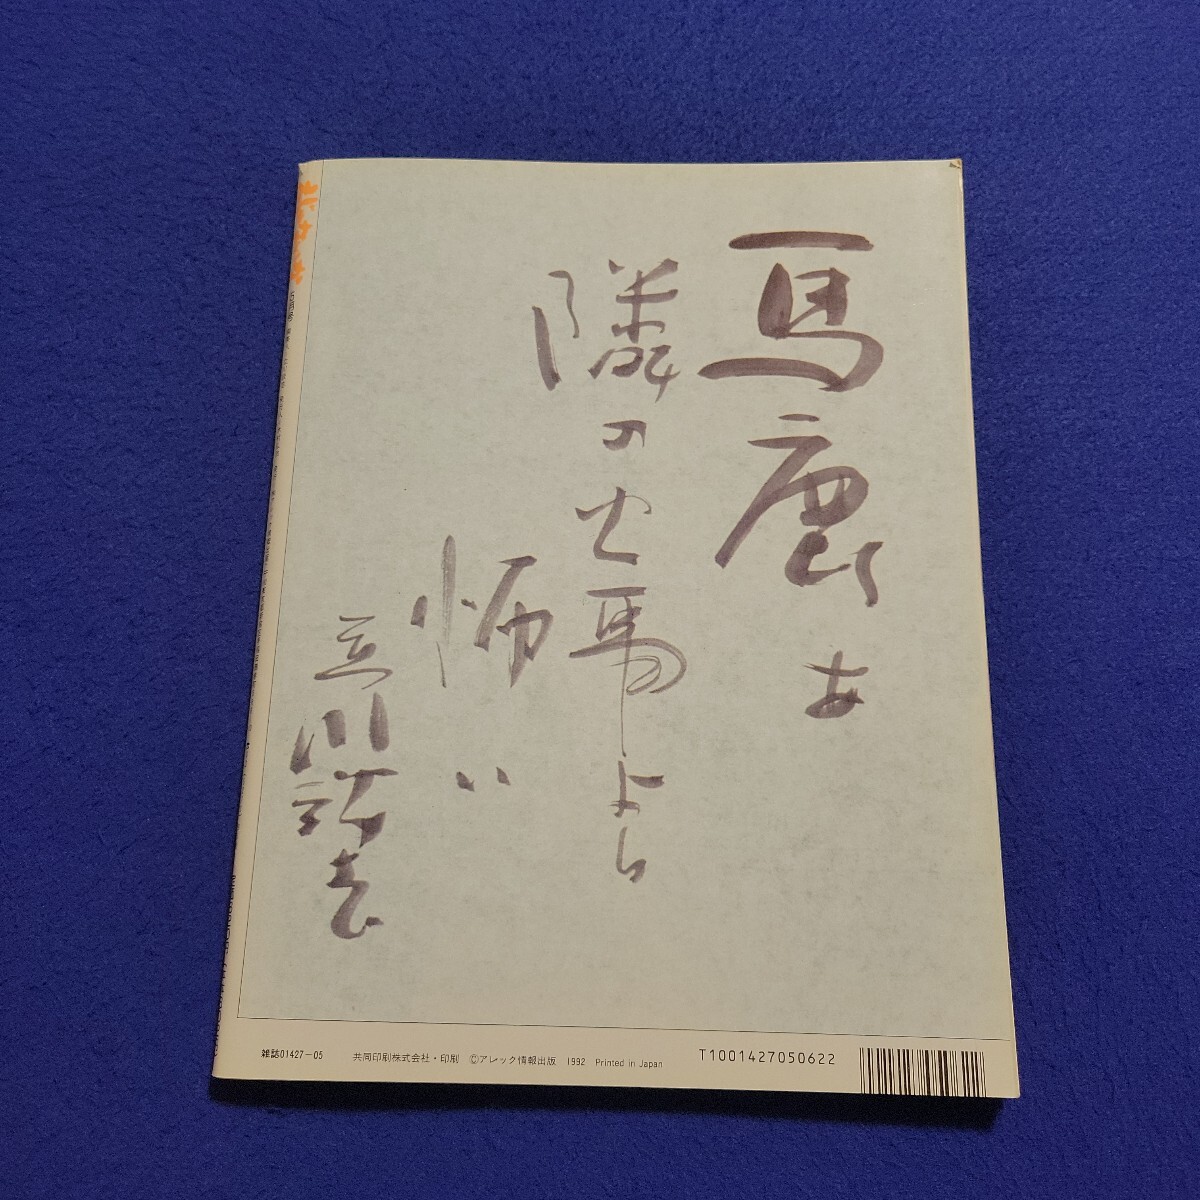 馬鹿は
隣の火事より
怖い
立川談志
雑誌01427-05
共同印刷株式会社・印刷 ©アレック情報出版 1992 Printed in Japan
T1001427050622